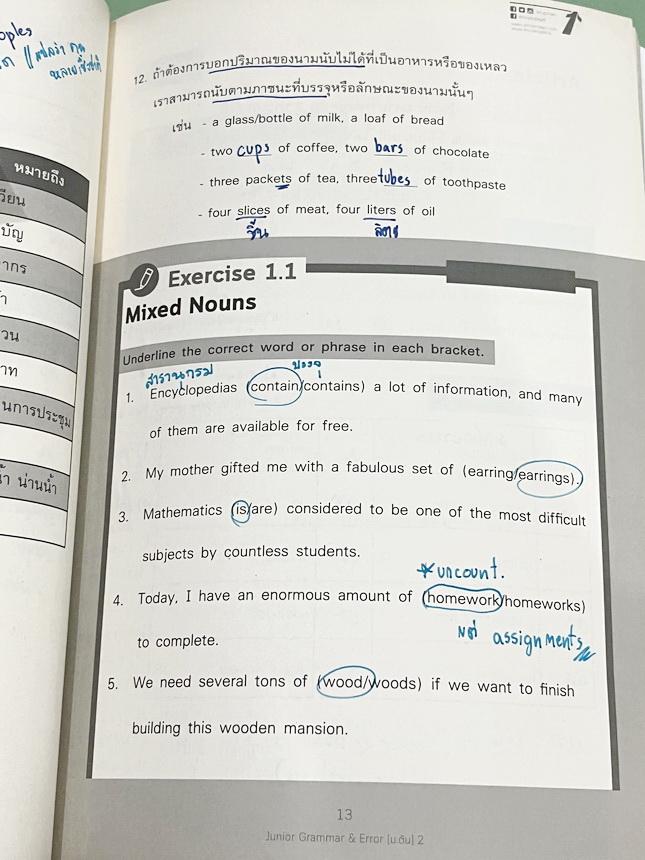 oples
แปลว่า คน
หลายเชื้อชาติ
หมายถึง
วียน
บัญ
ากร
้า
วน
าท
นการประชุม
น้ำ น่านน้ำ
1
12. ถ้าต้องการบอกปริมาณของนามนับไม่ได้ที่เป็นอาหารหรือของเหลว
เราสามารถนับตามภาชนะที่บรรจุหรือลักษณะของนามนั้นๆ
เช่น - a glass/bottle of milk, a loaf of bread
- two cups of coffee, two bars of chocolate
- three packets of tea, three tubes of toothpaste
- four slices of meat, four liters of oil
ชิ้น ลิตร
Exercise 1.1
Mixed Nouns
Underline the correct word or phrase in each bracket.
สารานุกรม บรรจุ
1. Encyclopedias (contain/contains) a lot of information, and many
of them are available for free.
2. My mother gifted me with a fabulous set of (earring/earrings).
3. Mathematics (is/are) considered to be one of the most difficult
subjects by countless students.
*uncount.
4. Today, I have an enormous amount of (homework/homeworks)
to complete.
แต่ assignments
5. We need several tons of (wood/woods) if we want to finish
building this wooden mansion.
13
Junior Grammar & Error [ม.ต้น] 2